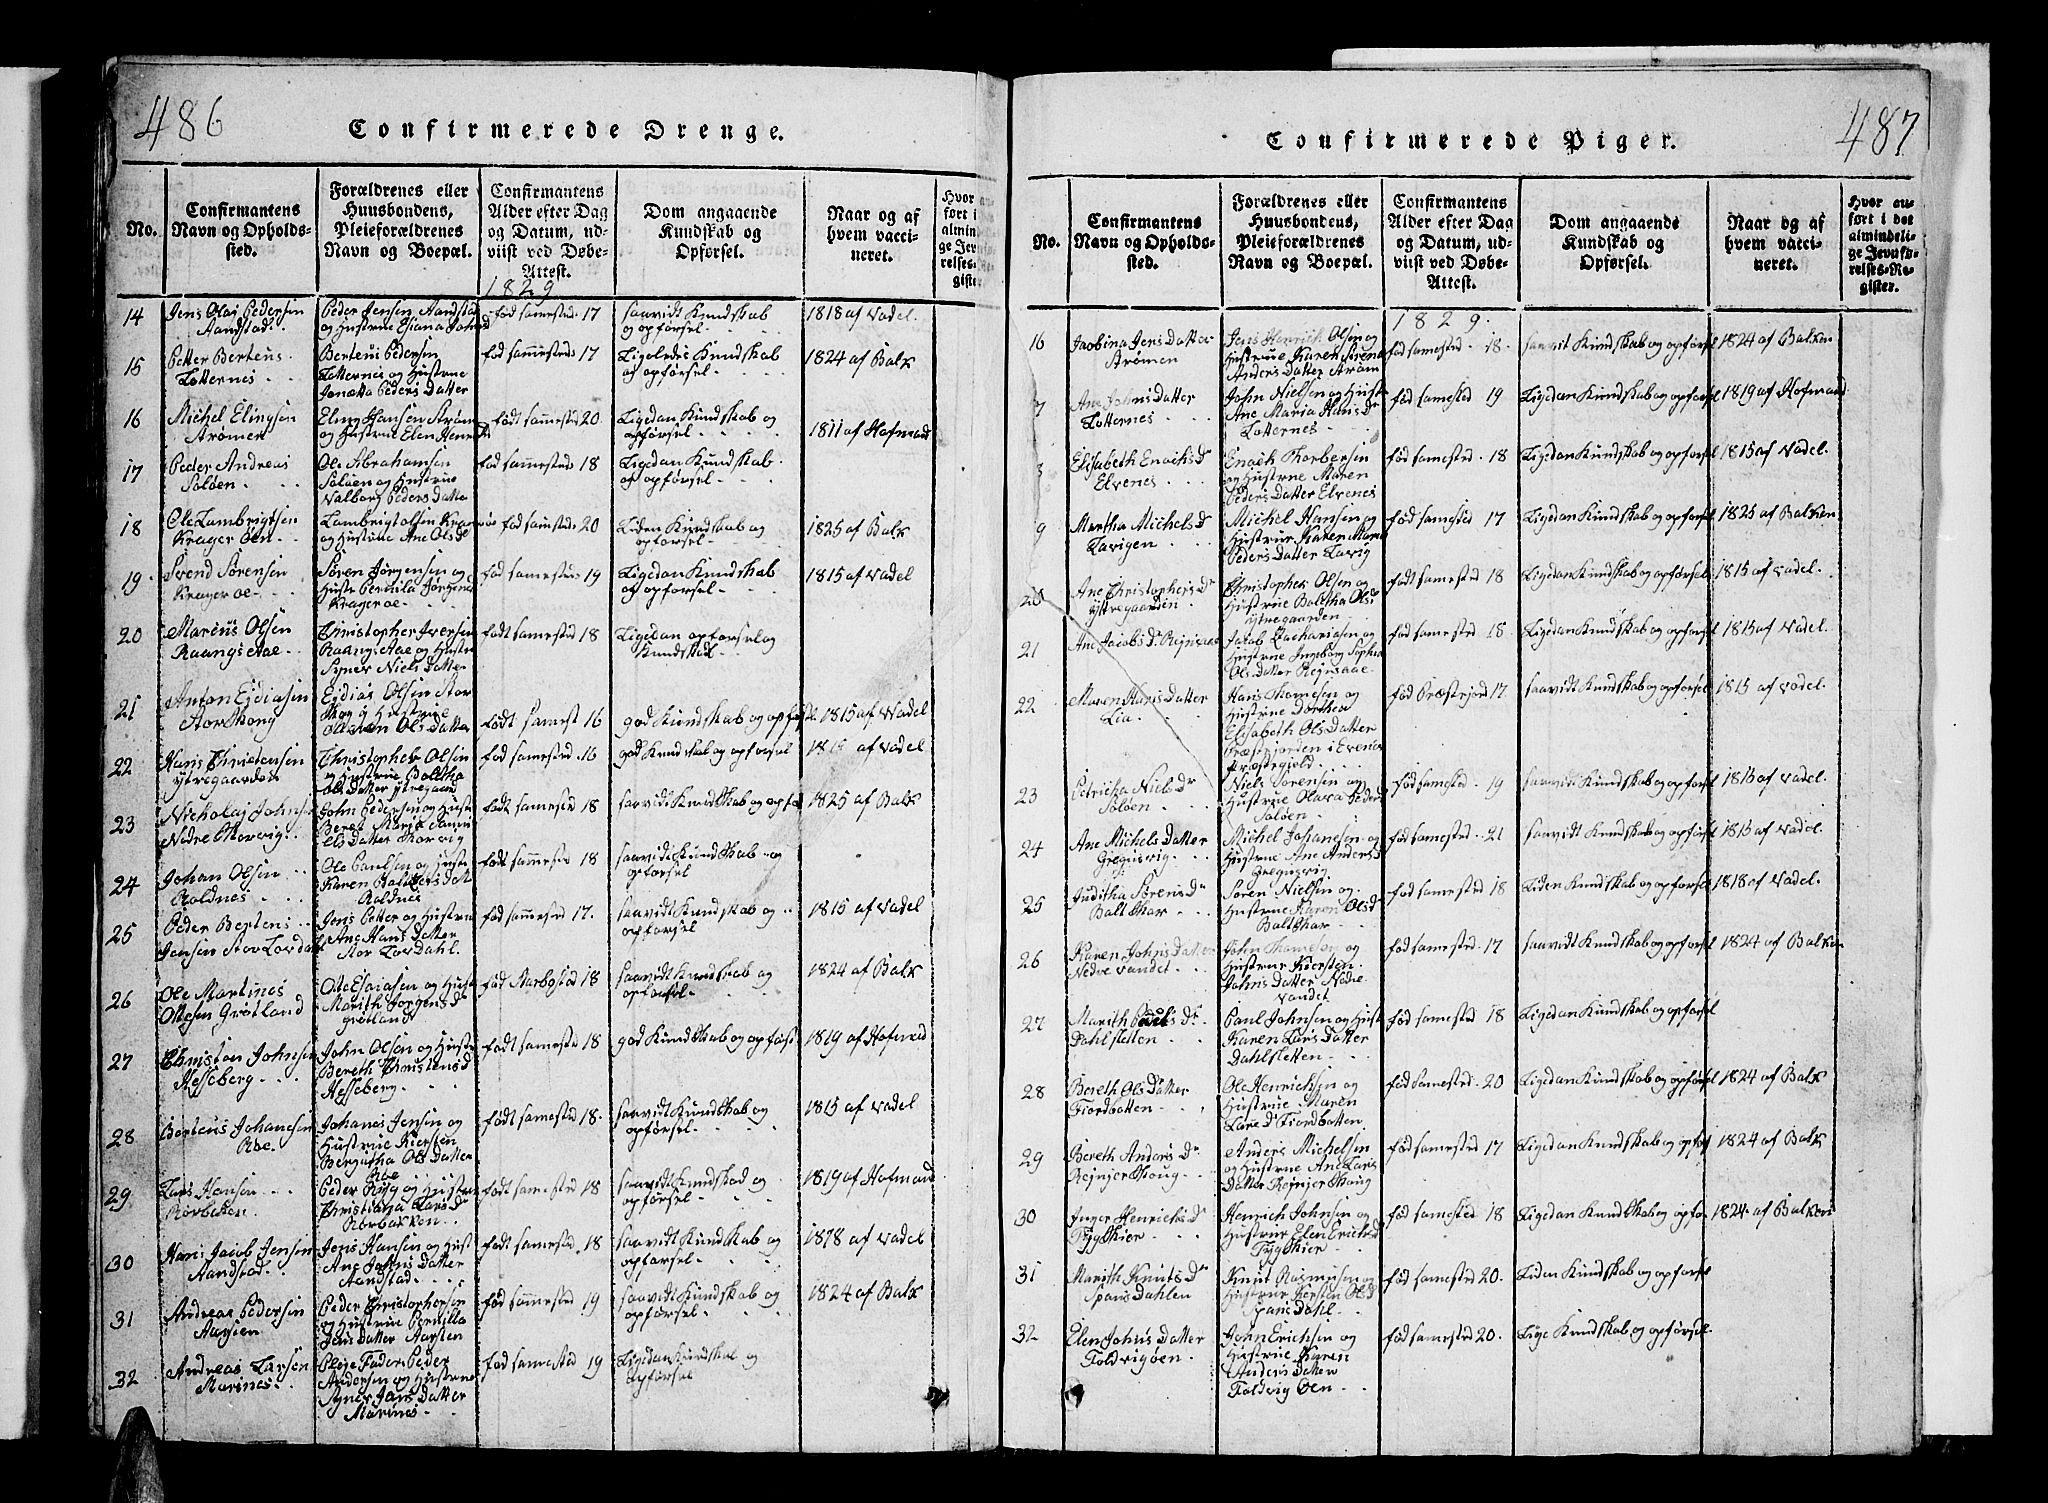 486
Confirmerede Drenge.
No.
Confirmantens
Navn og Opholds-
sted.
Forældrenes eller
Huusbondens,
Pleieforældrenes
Navn og Boepæl.
Confirmantens
Alder efter Dag
og Datum, ud-
viist ved Døbe-
Attest.
Dom angaaende
Kundskab og
Opførsel.
Naar og af
hvem vacci-
neret.
Hvor
ført i
almin
ge Jev
relses
gister
1829
14
Jens Olaj Pedersen
Aandstad
Peder Jensen Aandstad
og Hustrue
fød samested 17
saavidt Kundskab
og opførsel
1818 af Vadel.
15
Petter Berteus
Lotternes
Berteus Pedersen
Lotternes og Hustrue
Jonetta Peders Datter
fød sammested 17
Ligeledes Kundskab
og opførsel
1824 af Balk
16
Michel Elingsen
Strømen
Eling Hansen Strømen
og Hustrue Elen
født sammested 20
Ligedan Kundskab og
opførsel
1811 af Hofmand
17
Peder Andreas
Soløen
Ole Abrahamsen
Soløen og Hustrue
Valborg Peders Datter
fød sammested 18
Ligedan Kundskab
og opførsel
18
Ole Lambrigtsen
Krager Øen
Lambrigt Olsen
og Hustrue Ane Olsd
fød samested 20
Liden Kundskab og
opførsel
1825 af Balk
19
Svend Sørensen
Krager oe
Søren Jørgensen og
Hustr Pernila Jørgens
Krager oe
fød samested 19
Ligedan Kundskab
og opførsel
1815 af Vadel
20
Marcus Olsen
Raangs Aae
Christopher Iversen
Raangs Aae og Hustr
Syner Niels Datter
født samested 18
Ligedan opførsel og
Kundskab
21
Anton Ejdiasen
Stor Skong
Ejdias Olsen Stor
Skong Hustrue
Maren Ols Datter
født samest 16
god Kundskab og opførsel
1815 af Vadel
22
Hans Christensen
ytregaarden
Christopher Olsen
og Hustrue Baltha
Ols Datter ytregaard
fød samested 16
god Kundskab og opførsel
1815 af Vadel
23
Nicholaj Johnsen
Nedre
John Pedersen og Hust
Beret Maria
els Datter
født samested 18
saavidt Kundskab og opførsel
1825 af Balk
24
Johan Olsen
Roldnes
Ole Paulsen og Hust
Karen Baltzers Dat
Roldnes
født sammested 18
saavidt Kundskab og
opførsel
25
Peder Bertens
Jensen Stor Løvdahl
Jens Petter og Hustrue
Ane Hans Datter
Stor Løvdahl.
fød sammested 17.
saavidt Kundskab og
opførsel
1815 af Vadel
26
Ole Martines
Ottesen Grøtland
Otte Esaiasen og Hust
Marith Jørgensd
grøtland
fød 18
saavidt Kundskab og
opførsel
1824 af Balk
27
Christen Johnsen
Hesseberg
John Olsen og Hustr
Bereth Christens d
Hesseberg
født samested 18
god Kundskab og opførs
1819 af Hofmad
28
Berteus Johanesen
Roe.
Johanes Jensen og
Hustrue Kiersten
Bergitha Ols Datter
Roe
født samested 18.
saavidt Kundskab og
opførsel
1815 af Vadel
29
Lars Hansen
Rørbaken
Peder Ryg og Hustrue
Christiana Lars d
Rørbakken
født samested 18
saavidt Kundskab og
opførsel
1819 af Hofmand
30
Hans Jacob Jensen
Aandstad
Jens Hansen og Hust
Ane Johns Datter
Aandstad
født samested 18
saavidt Kundskab og
opførsel
1818 af Vadel
31
Andreas Pedersen
Aarsten
Peder Christophersen
og Hustrue Pernilla
Jens Datter Aarsten
fød sammested 19
saavidt Kundskab og
opførsel
1824 af Balk
32
Andreas Larsen
Marines
Pleje Fader Peder
Andersen og Hustrue
Syner Jans Datter
Marines
fød samested 19
Ligedan Kundskab og
opførsel
487
Confirmerede Piger.
No.
Confirmantens
Navn og Opholds-
sted.
Forældrenes eller
Huusbondens,
Pleieforældrenes
Navn og Boepæl.
Confirmantens
Alder efter Dag
og Datum, ud-
viist ved Døbe-
Attest.
Dom angaaende
Kundskab og
Opførsel.
Naar og af
hvem vacci-
neret.
Hvor an-
ført i det
almindeli-
ge Jevnfø-
relses-Re-
gister.
1829.
16
Jacobina Jens Datter
Strømen
Jens Henrich Olsen og
Hustrue Karen
Anders Datter Strøm
fød samested 18.
saavit Kundskab og opførsel
1824 af Balken
7
Ane Johns Datter
Lotternes
John Nielsen og Hust
Ane Maria Hans d
Lotternes
fød samested 19
Ligedan Kundskab og opførsel
1819 af Hofmand
8
Elisabeth Enochs d
Elvenes
Enoch Thorbersen
og Hustrue Maren
Peders Datter Elvenes
fød samested 18
Ligedan Kundskab og opførsel
1815 af Vadel.
9
Martha Michels d
Lavigen
Michel Hansen og
Hustrue Karen Maria
Peders Datter Lavig
fød samested 17
Ligedan Kundskab og opførsel
1825 af Balken
20
Ane Christophers d
ytregaarden
Christopher Olsen og
Hustrue Baltha Ols d
ytregaarden
født samested 18
Ligedan Kundskab og opførsel
1815 af Vadel
21
Ane Jacobs d Rejnsaae
Jacob Zachariasen og
Hustrue Ingeborg Sophia
Ols Datter Rejnsaae
fød samested 18
Ligedan Kundskab og opførsel
1815 af Vadel
22
Maren Hans Datter
Lia
Hans Thomesen og
Hustrue Dorthea
Elisabeth Ols Datter
fjorden i Evenes
Præstegield
fød 17.
saavidt Kundskab og opførsel
1815 af Vadel.
23
Petricka Niels d
Soløen
Niels Sørensen og
Hustrue Olava Peders
Soløen
fød samested 19
saavidt Kundskab og opførsel
1815 af Vadel.
24
Ane Michels Datter
Gregusvig
Michel Johanesen og
Hustrue Ane Anders d
Gregusvig
fød samested 21
saavidt Kundskab og opførsel
1815 af Vadel.
25
Juditha Sørens d
Balt Skar
Søren Nielsen og
Hustrue Karen Ols d
Balt Skar
fød samested 18
Liden Kundskab og opførsel
1818 af Vadel.
26
Karen Johns Datter
Nedre Vandet
John Thomesen og
Hustrue Kiersten
Johns Datter Nedre
Vandet
fød samested 17
saavidt Kundskab og opførsel
1824 af Balken
27
Marith Pauls d
Dahlsletten
Paul Johnsen og Hust
Karen Lars Datter
Dahlsletten
fød samested 18
Ligedan Kundskab og opførsel
28
Bereth Ols Datter
Fiordbotten
Ole Henrichsen og
Hustrue Maren
Lars d Fiordbotten
fød samested 20
Ligedan Kundskab og opførsel
1824 af Balk
29
Bereth Anders d
Rejnjer Skoug
Anders Michelsen
og Hustrue Ane Lars
Datter Rejnjer Skoug
fød samested 17
Ligedan Kundskab og opførs
1824 af Balk
30
Inger Henrichs d
Tyg Skier
Henrich Johnsen og
Hustrue Elen Erichs d
Tyg Skier
fød samested 18
Ligedan Kundskab og opfør
1824. af Balken
31
Marith Knuts d
Spans Dahlen
Knut Rasmusen og
Hustrue Kersten Ols d
Spans Dahl
fød samested 20.
Liden Kundskab og opførsel
32
Elen Johns Datter
Foldvigøen
John Erichsen og
Hustrue Karen
Anders Datter
Foldvig Øen
fød samested 20.
Lige Kundskab og opførsel.